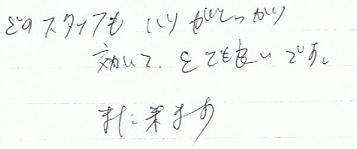 どのスタッフも ハリがしっかり
効いて、とても良いです。
また来ます